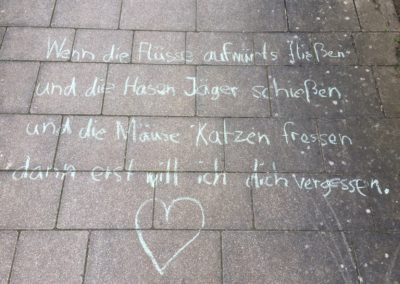 Wenn die Flüsse aufwärts fließen
und die Hasen Jäger schießen
und die Mäuse Katzen fressen
dann erst will ich dich vergessen.